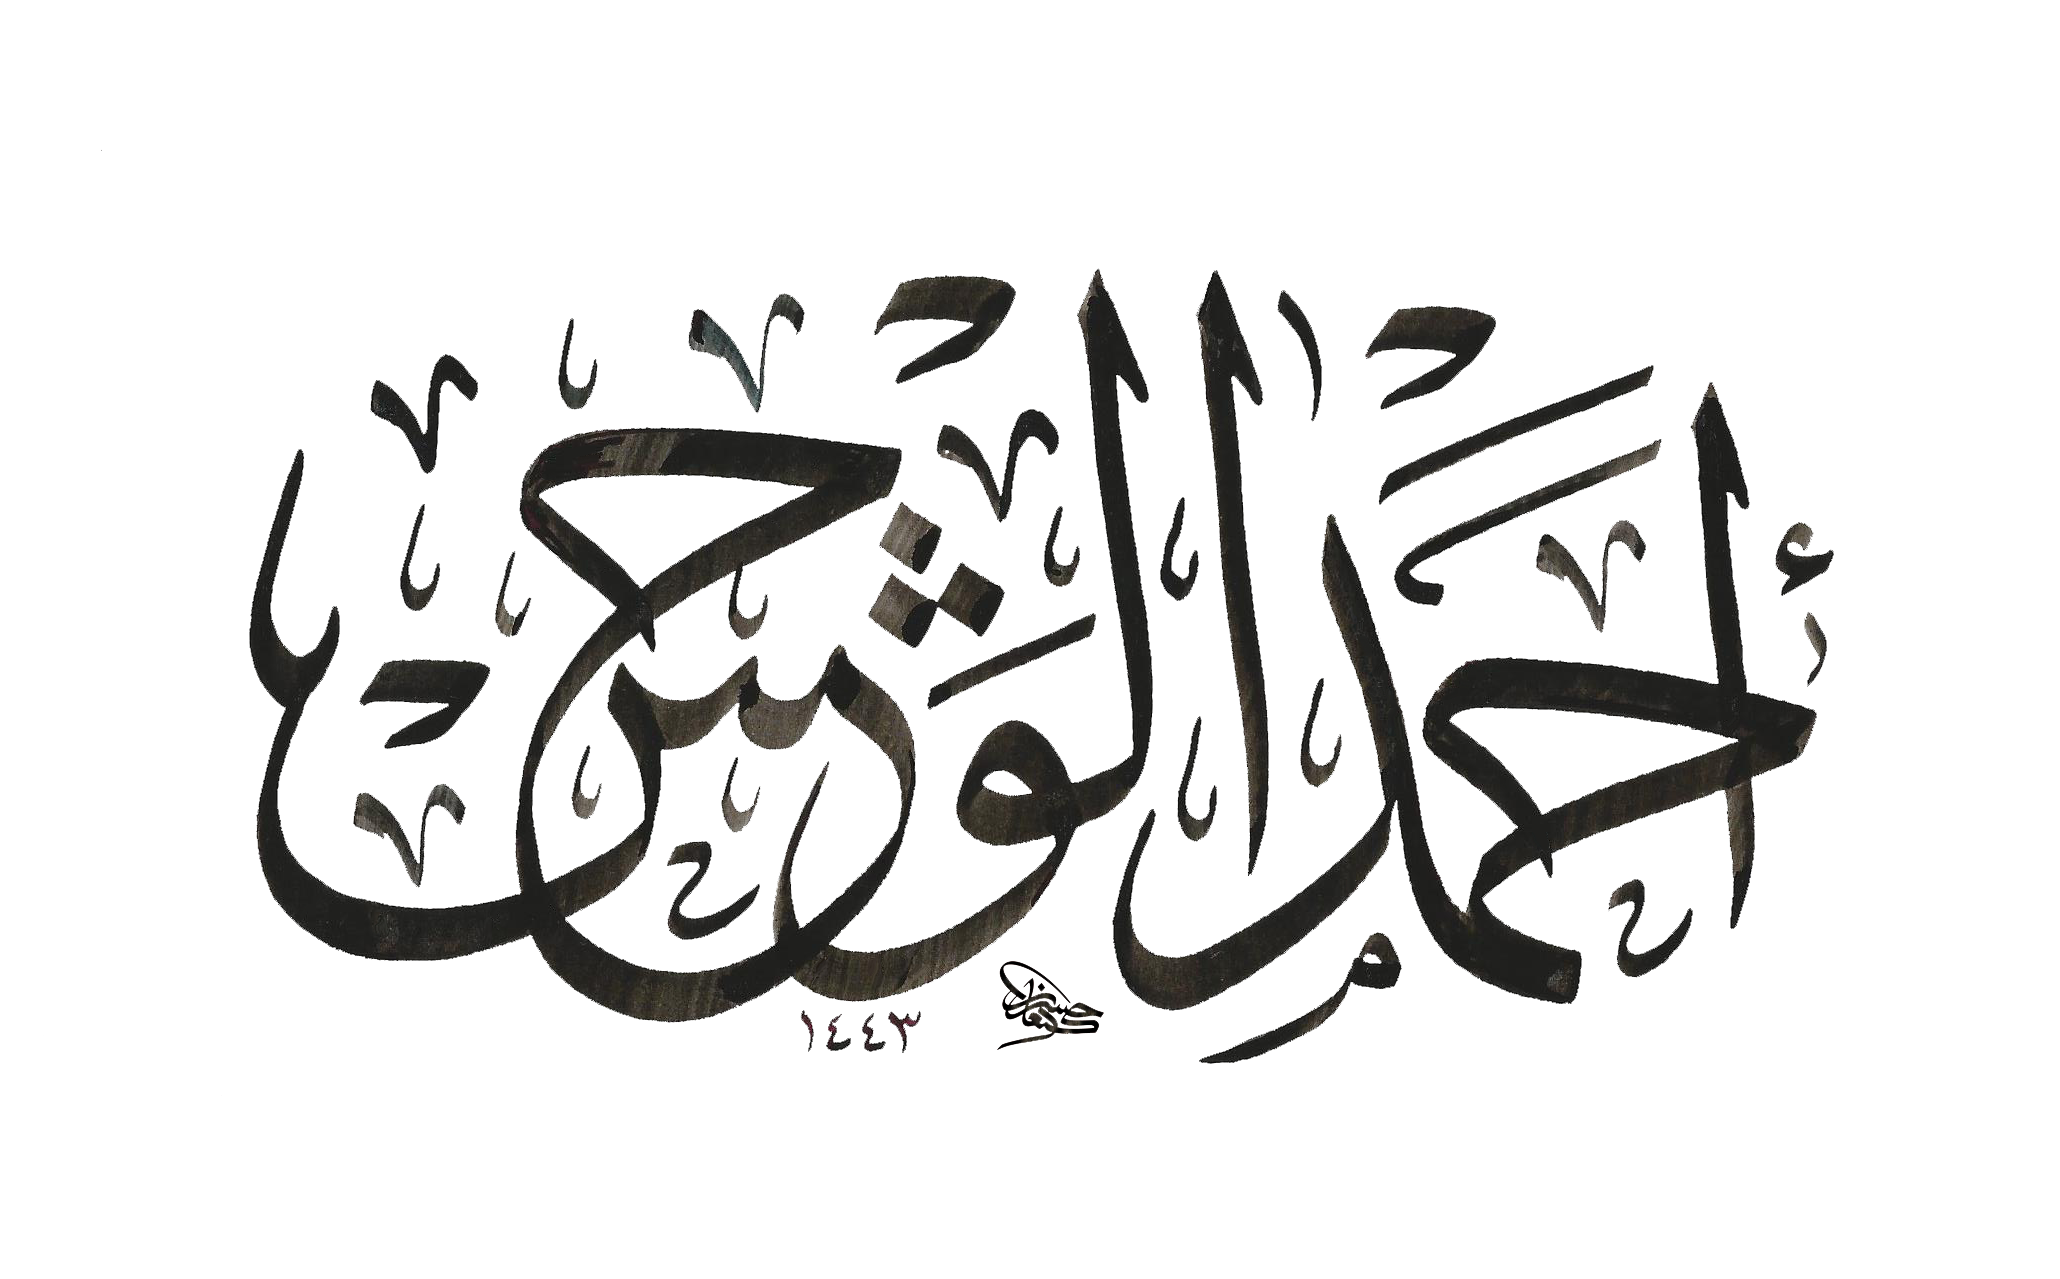 أحمد الوشحي
١٤٤٣